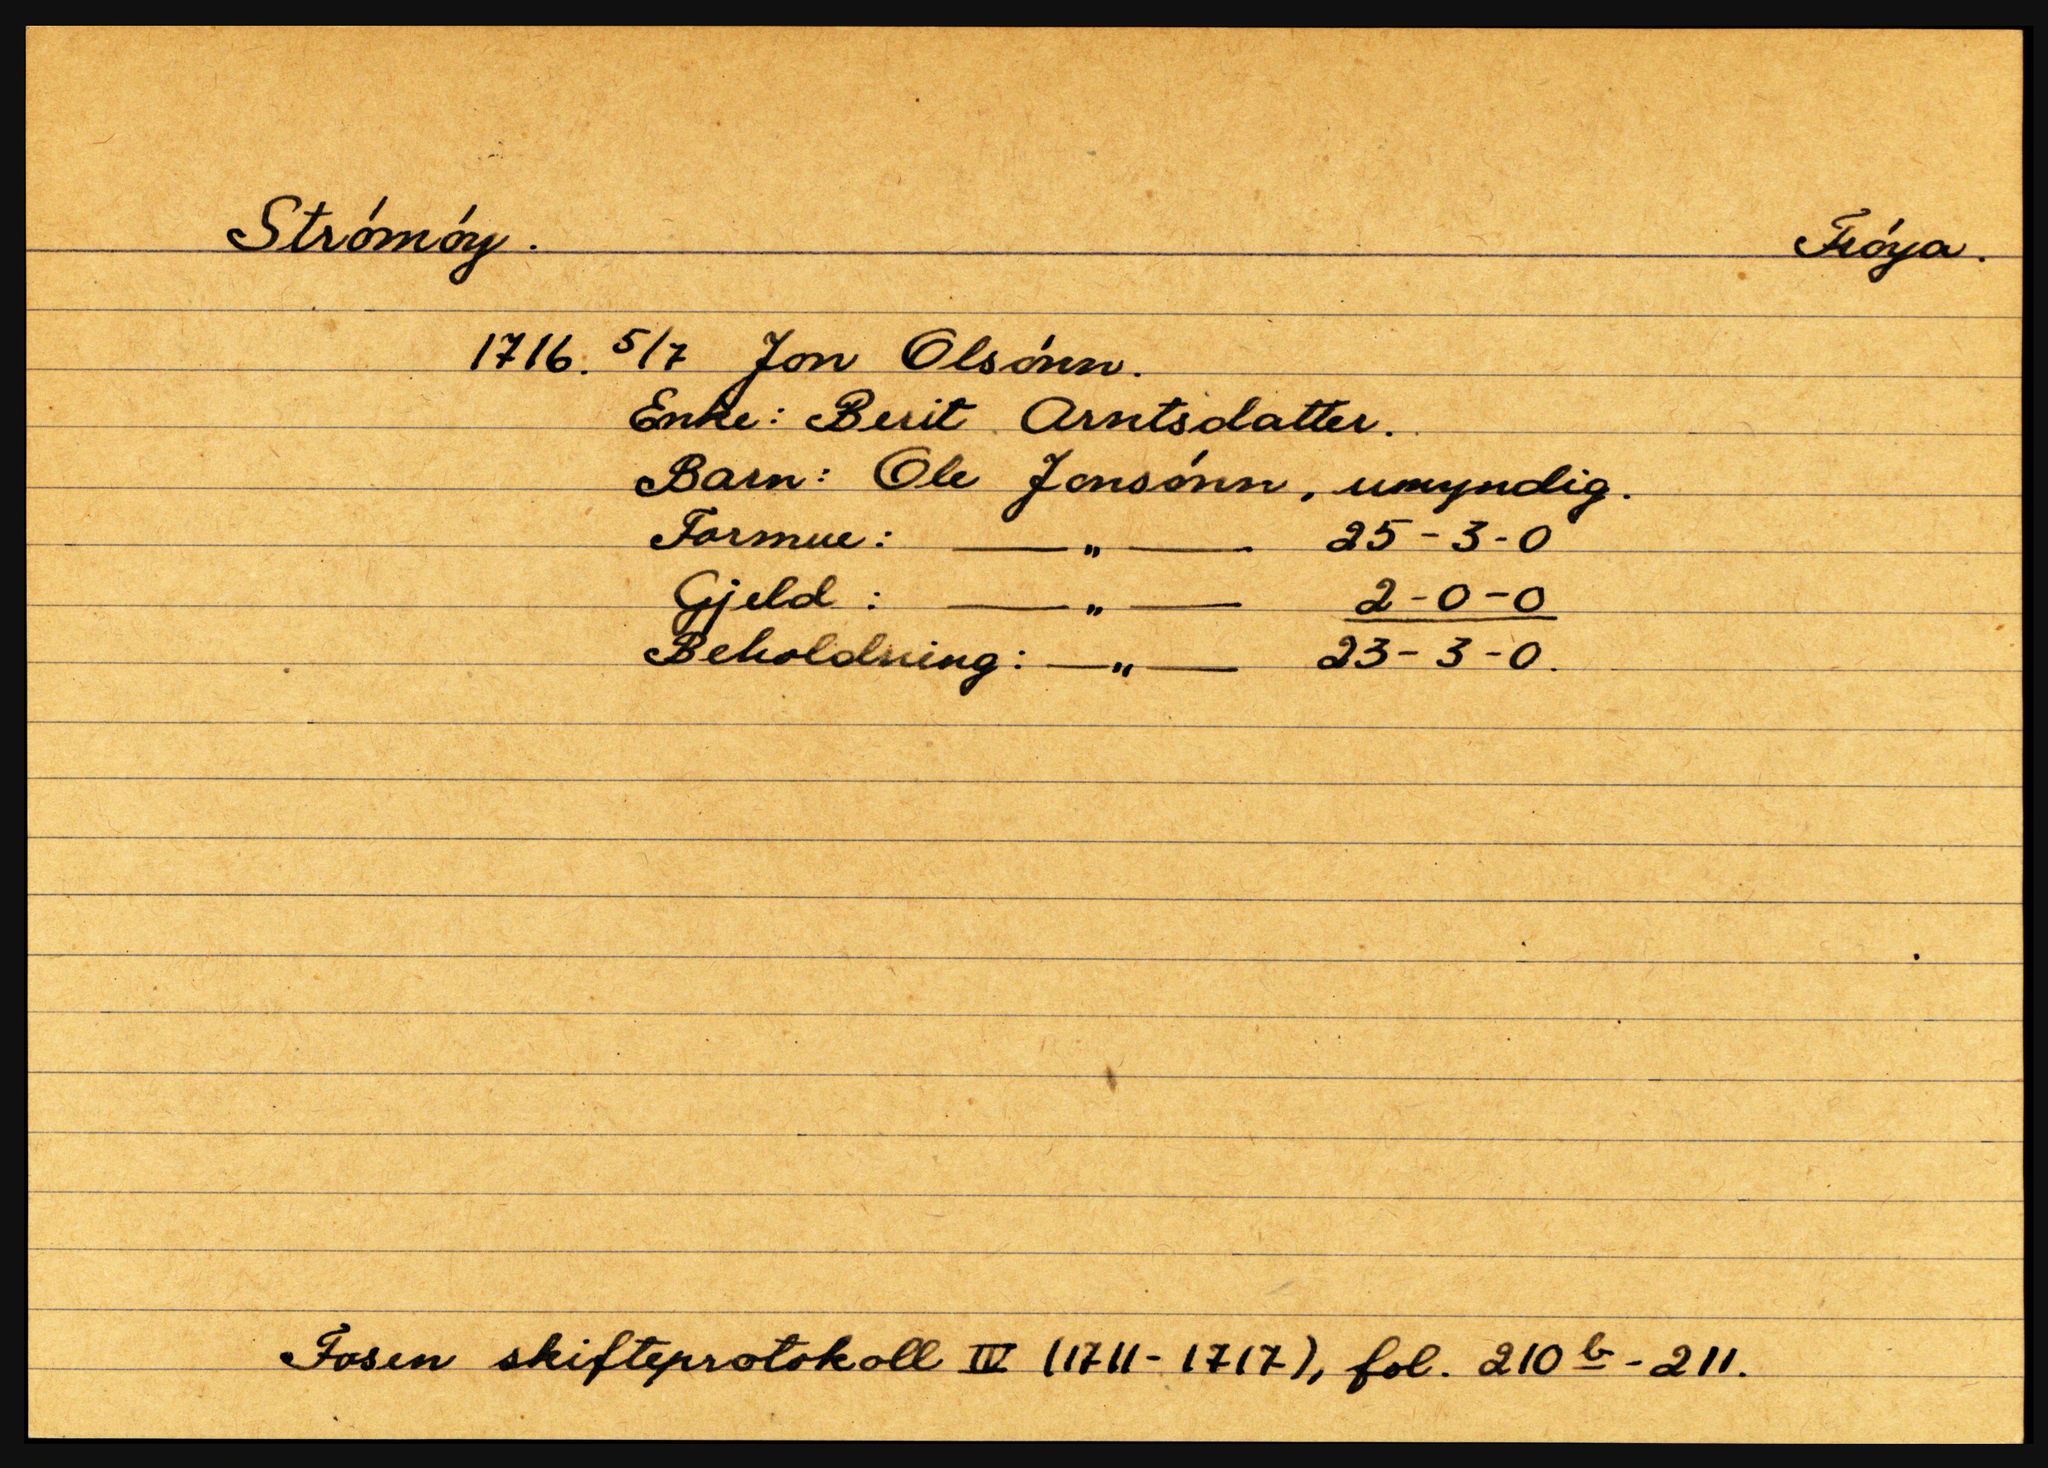 Strómóy. Fróya.
1716. 5/7 Jon Olsónn.
Enke: Berit Arntsdatter.
Barn: Ole Jonsónn, umyndig.
Formue: — „ — 25-3-0
Gjeld: — „ — 2-0-0
Beholdning: — „ — 23-3-0.
Fosen skifteprotokoll IV (1711-1717), fol. 210 b - 211.